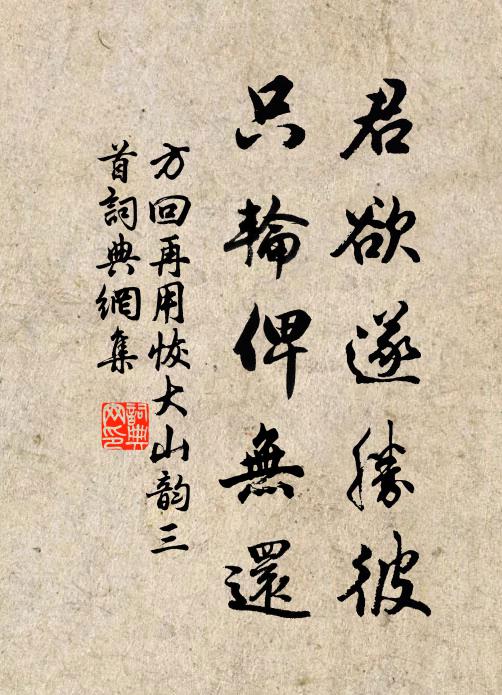 君欲遂勝彼
只輪俾無還
方回再用恢大山韵三
首詞典網集
詞典網印